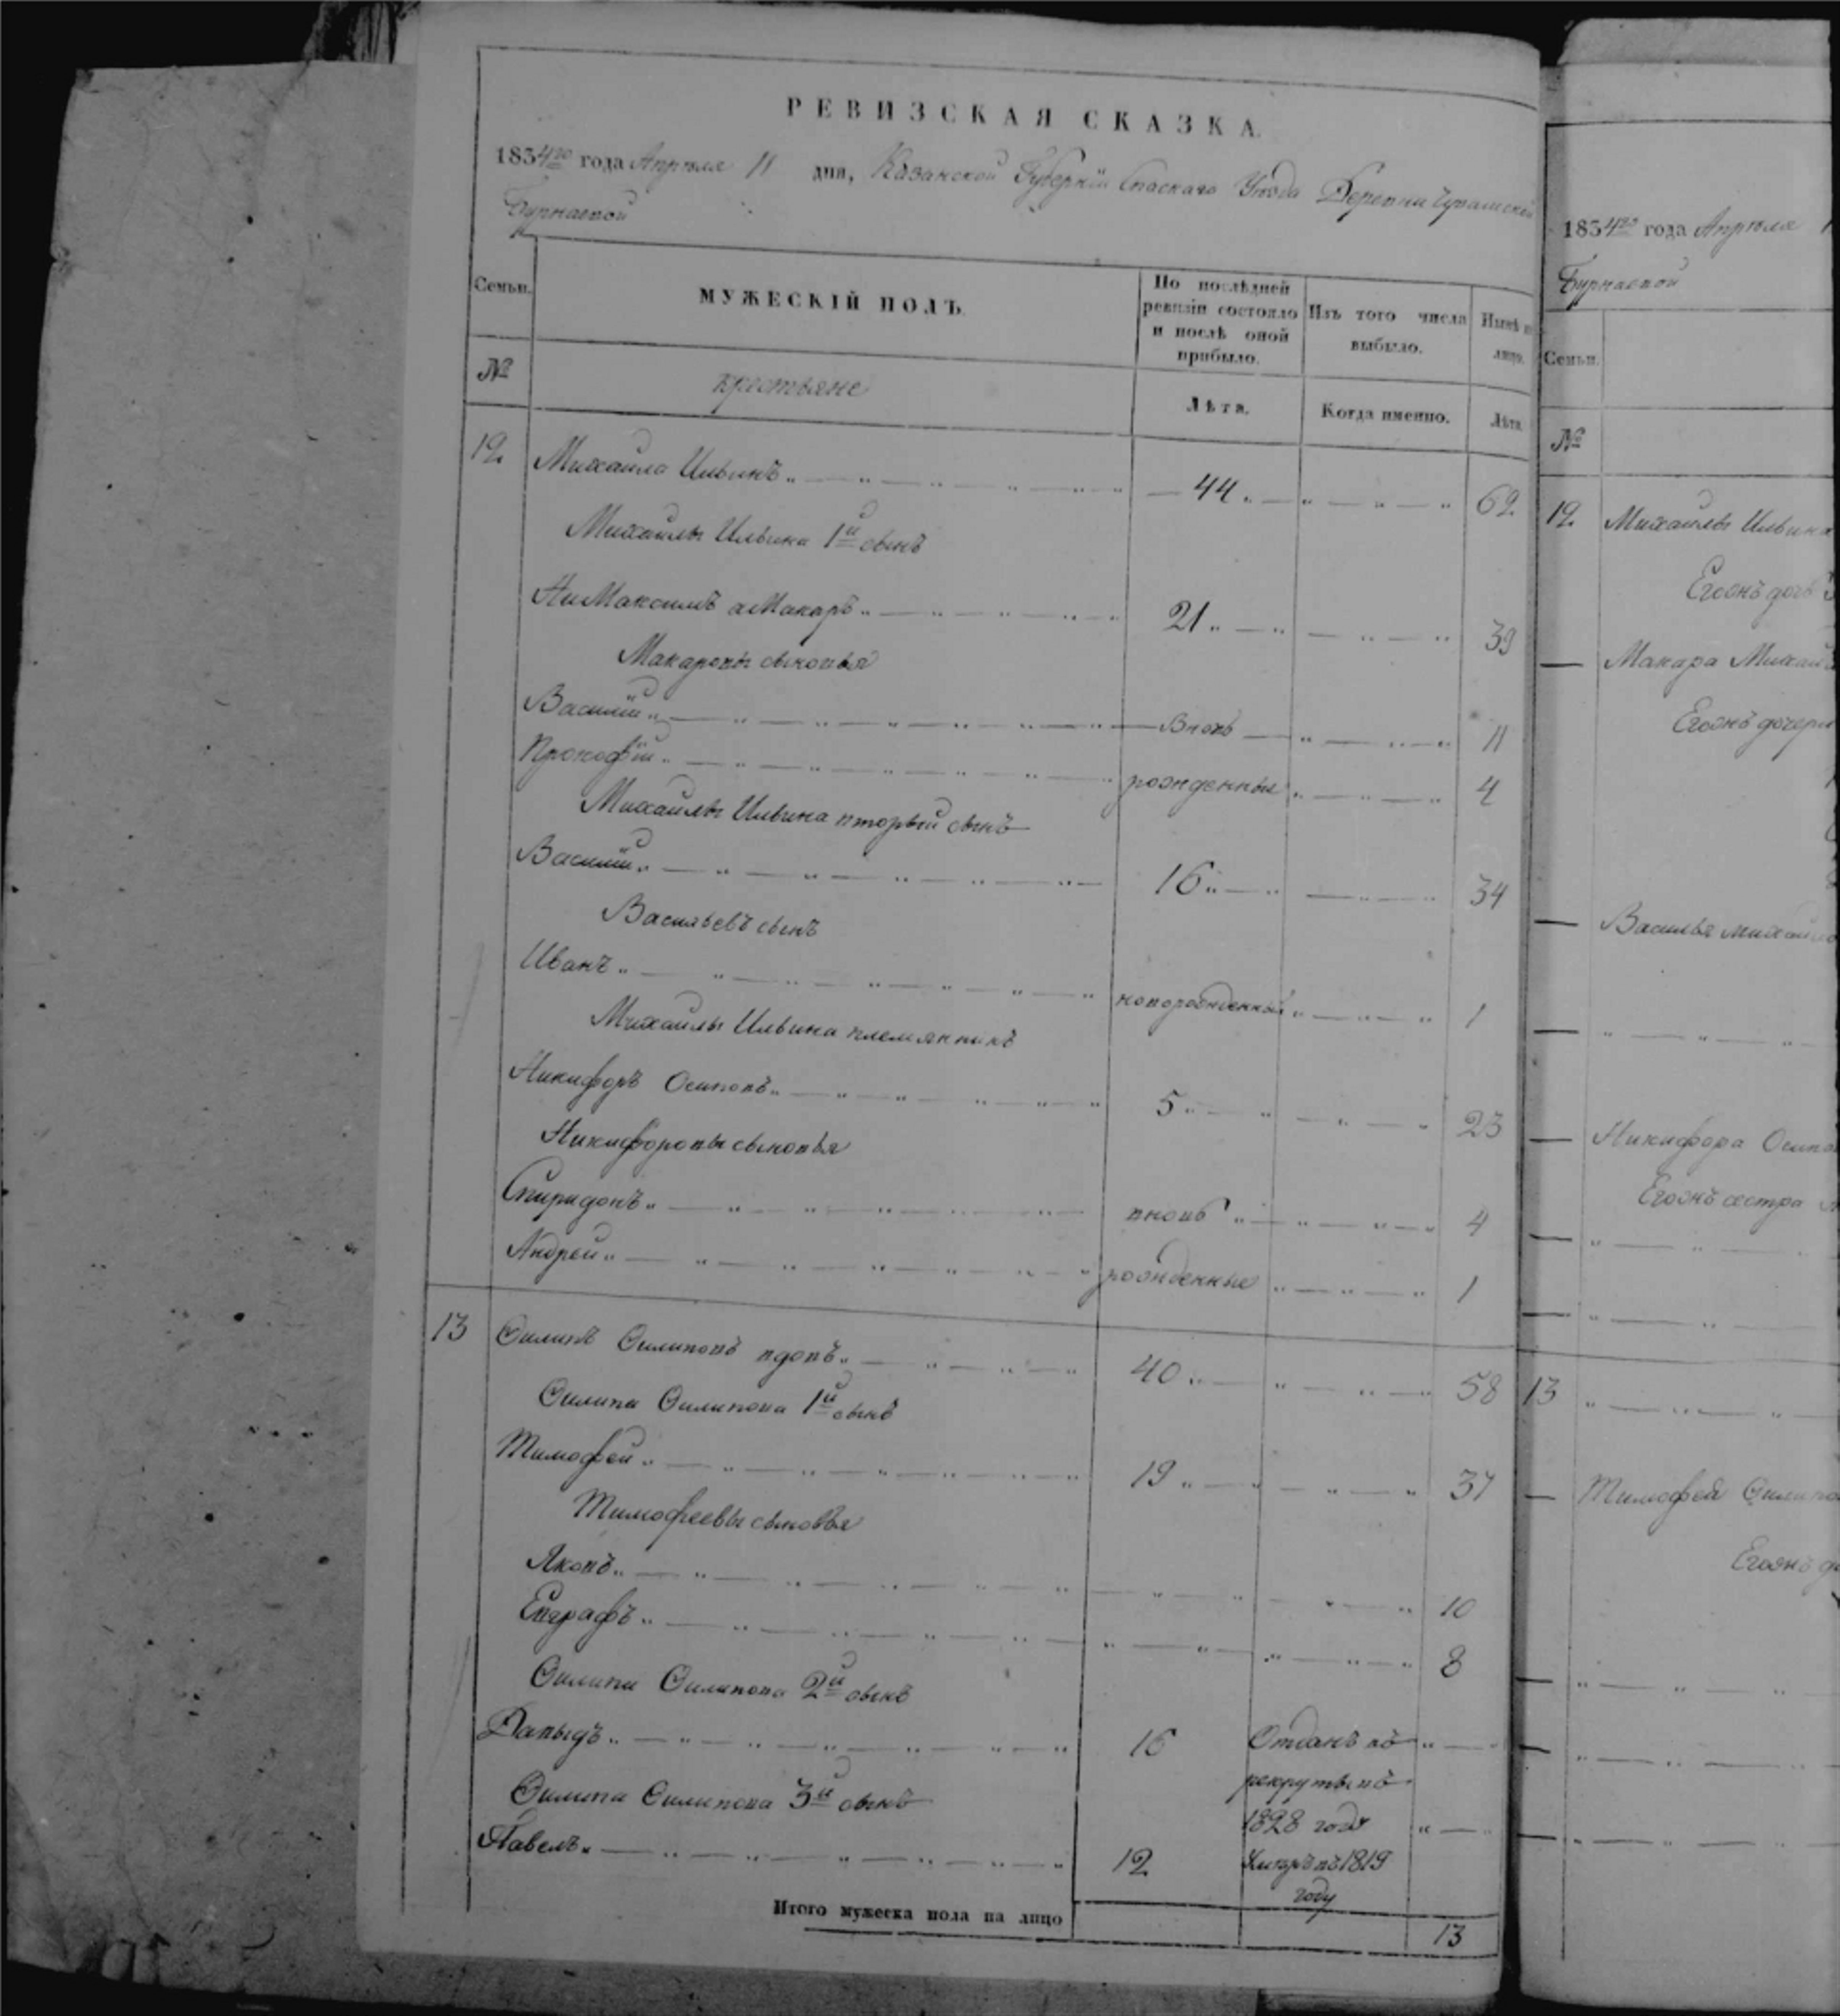 РЕВИЗСКАЯ СКАЗКА.
1834го года Апрѣля 11 дня, Казанской Губерніи Спаскаго Уѣзда Деревни Чувашской
Бурнаевой
Семьи.
МУЖЕСКІЙ ПОЛЪ.
По послѣдней
ревизіи состояло
и послѣ оной
прибыло.
Изъ того числа
выбыло.
Нынѣ
лицо.
№
крестьяне
Лѣта.
Когда именно.
Лѣта.
12 Михаила Ильинъ 44 62
Михаилы Ильина 1й сынъ
Ни Максимъ а Макаръ 21 39
Макаровы сыновья
Василій Вновь 11
Прокофій рожденныя 4
Михаилы Ильина второй сынъ
Василій 16 34
Васильевъ сынъ
Иванъ новорожденный 1
Михаилы Ильина племянникъ
Никифоръ Осиповъ 5 23
Никифоровы сыновья
Спиридонъ вновь 4
Андрей рожденныя 1
13 Филипъ Филиповъ вдовъ 40 58
Филипа Филипова 1й сынъ
Тимофей 19 37
Тимофеевы сыновья
Яковъ 10
Евграфъ 8
Филипа Филипова 2й сынъ
Давыдъ 16 Отданъ въ
рекруты въ
1828 году
Филипа Филипова 3й сынъ
Павелъ 12 Умеръ въ 1819
году
Итого мужеска пола на лицо 13
1834го года Апрѣля
Бурнаевой
Семьи.
№
12 Михаилы Ильина
Егожъ дочь
Макара
Егожъ дочери
Василья
Никифора
Егожъ сестра
13
Тимофея
Егожъ